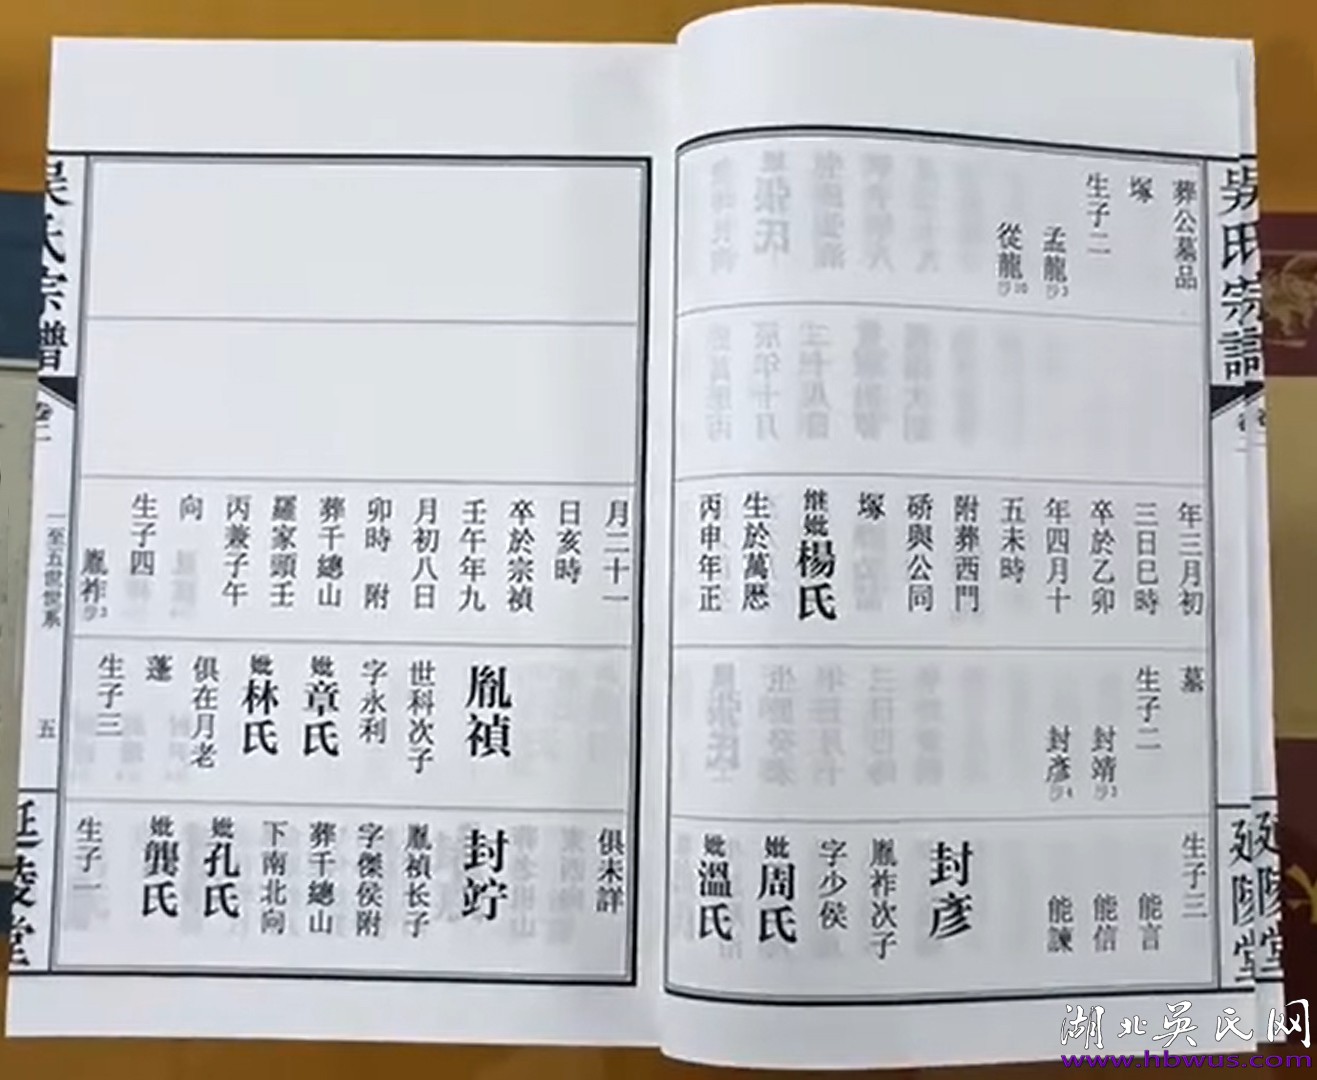 吴氏宗譜
卷二
延陵堂
葬公墓品
塚
生子二
孟龍
從龍
年三月初
三日巳時
卒於乙卯
年四月十
五未時
附葬西門
硚與公同
塚
继妣楊氏
生於萬厯
丙申年正
墓
生子二
封靖
封彦
生子三
能言
能信
能諫
封彦
胤祚次子
字少侯
妣周氏
妣溫氏
月二十一
日亥時
卒於宗禎
壬午年九
月初八日
卯時 附
葬千總山
羅家頭壬
丙兼子午
向
生子四
胤祚
胤禎
世科次子
字永利
妣章氏
妣林氏
俱在月老
蓬
生子三
俱未詳
封竚
胤禎长子
字傑侯附
葬千總山
下南北向
妣孔氏
妣龔氏
生子一
吴氏宗譜
卷二
一至五世世系
五
延陵堂
湖北吴氏网
www.hbwus.com